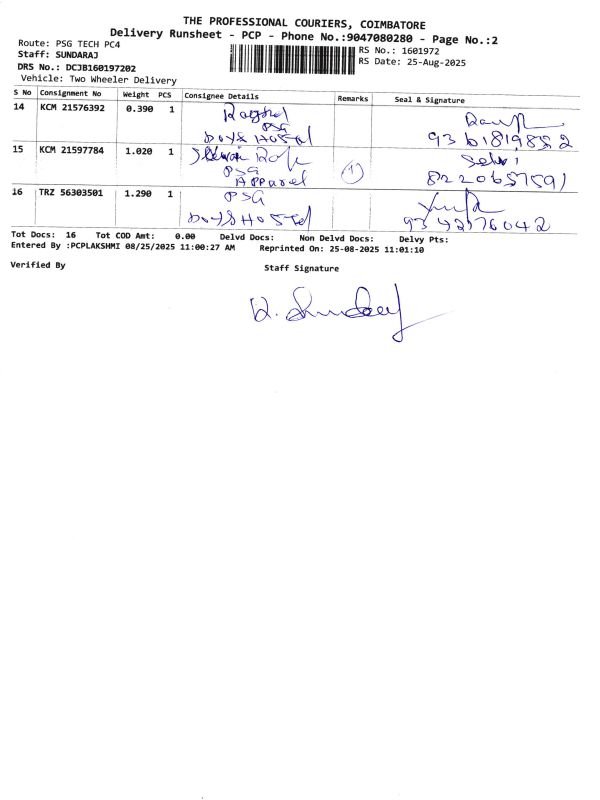 THE PROFESSIONAL COURIERS, COIMBATORE
Delivery Runsheet - PCP - Phone No.:9047080280 - Page No.:2
Route: PSG TECH PC4
RS No.: 1601972
Staff: SUNDARAJ
RS Date: 25-Aug-2025
DRS No.: DCJB160197202
Vehicle: Two Wheeler Delivery
S No Consignment No Weight PCS Consignee Details Remarks Seal & Signature
14 KCM 21576392 0.390 1
PSG
Boys Hostel 9361819852
15 KCM 21597784 1.020 1
PSG (1) Selvi
Apparel 8220657591
16 TRZ 56303501 1.290 1 PSG
Boys Hostel 9342276042
Tot Docs: 16 Tot COD Amt: 0.00 Delvd Docs: Non Delvd Docs: Delvy Pts:
Entered By :PCPLAKSHMI 08/25/2025 11:00:27 AM Reprinted On: 25-08-2025 11:01:10
Verified By Staff Signature